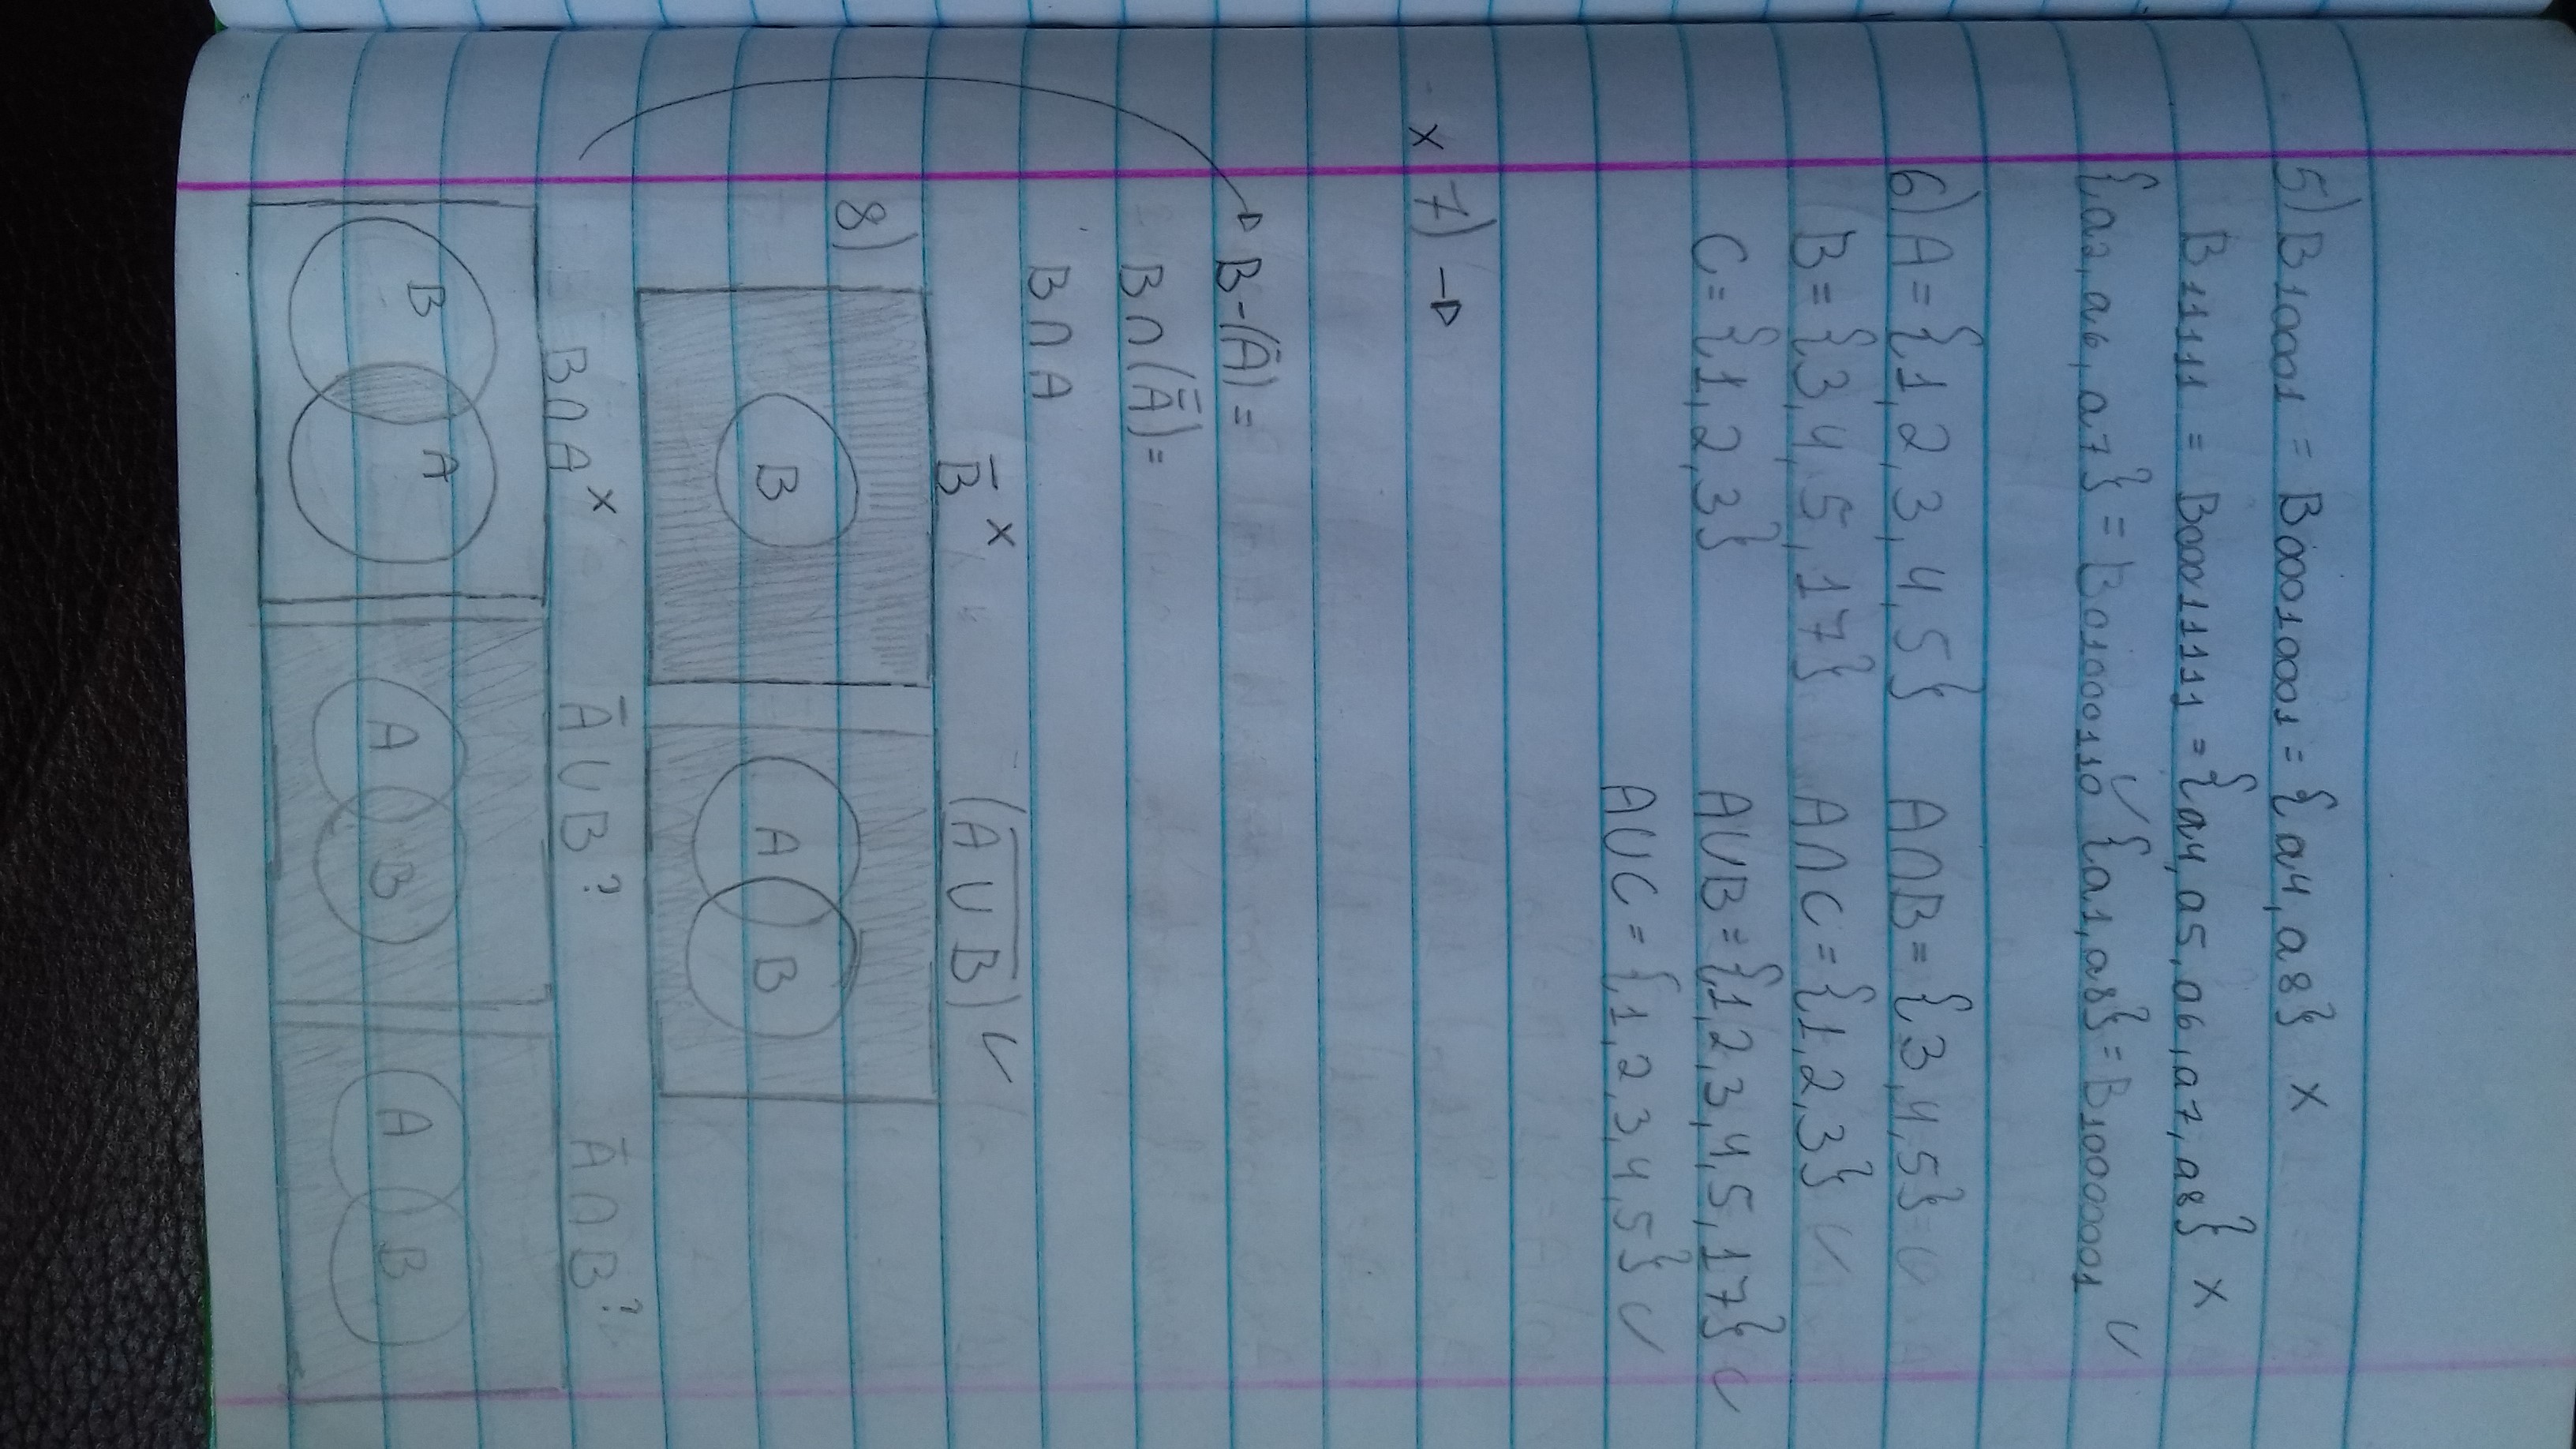 5) B10001 = B00010001 = {a4, a8} X
B11111 = B00011111 = {a4, a5, a6, a7, a8} X
{a2, a6, a7} = B01000110 ✓ {a1, a8} = B10000001 ✓
6) A = {1, 2, 3, 4, 5} A∩B = {3, 4, 5} ✓
B = {3, 4, 5, 17} A∩C = {1, 2, 3} ✓
C = {1, 2, 3} A∪B = {1, 2, 3, 4, 5, 17} ✓
A∪C = {1, 2, 3, 4, 5} ✓
x 7) →
→ B-(Ā) =
B∩(A̿) =
B∩A
B̅ x (A̅ ̅∪̅ ̅B̅) ✓
8)
B A B
B∩A x Ā∪B ? Ā∩B ?
B A A B A B